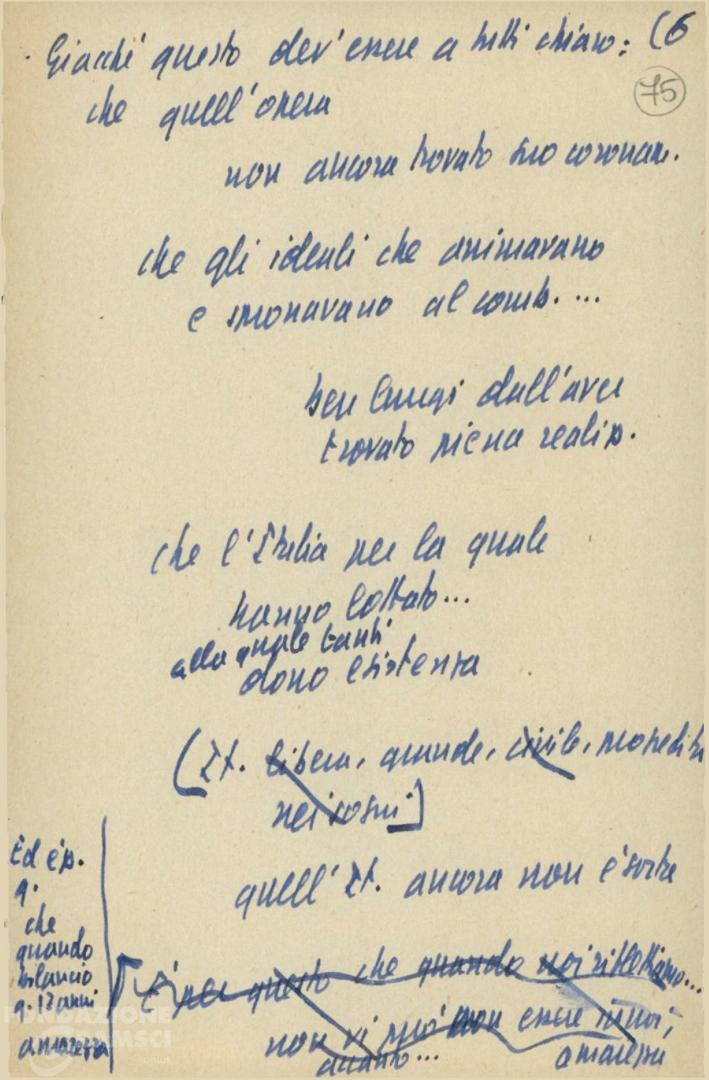 Giacché questo dev'essere a tutti chiaro: (6
75
che quell'opera
non ancora trovato suo coronam.
che gli ideali che animavano
e spronavano al comb. ...
ben lungi dall'aver
trovato piena realiz.
che l'Italia per la quale
hanno lottato...
alla quale tanti
dono esistenza
(It. libera, grande, civile,
nei sogni)
quell'It. ancora non è sorta
Ed è p.
q.
che
quando
bilancio
q. 12 anni
amarezza
È per questo che quando noi riflettiamo...
non vi può non essere in noi,
quanto...
amarezza
FONDAZIONE
GRAMSCI